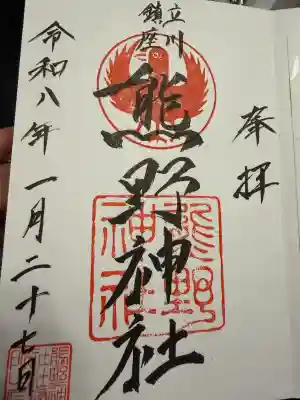 奉拝
立川
鎮座
熊野神社
熊野
神社
令和八年一月二十七日